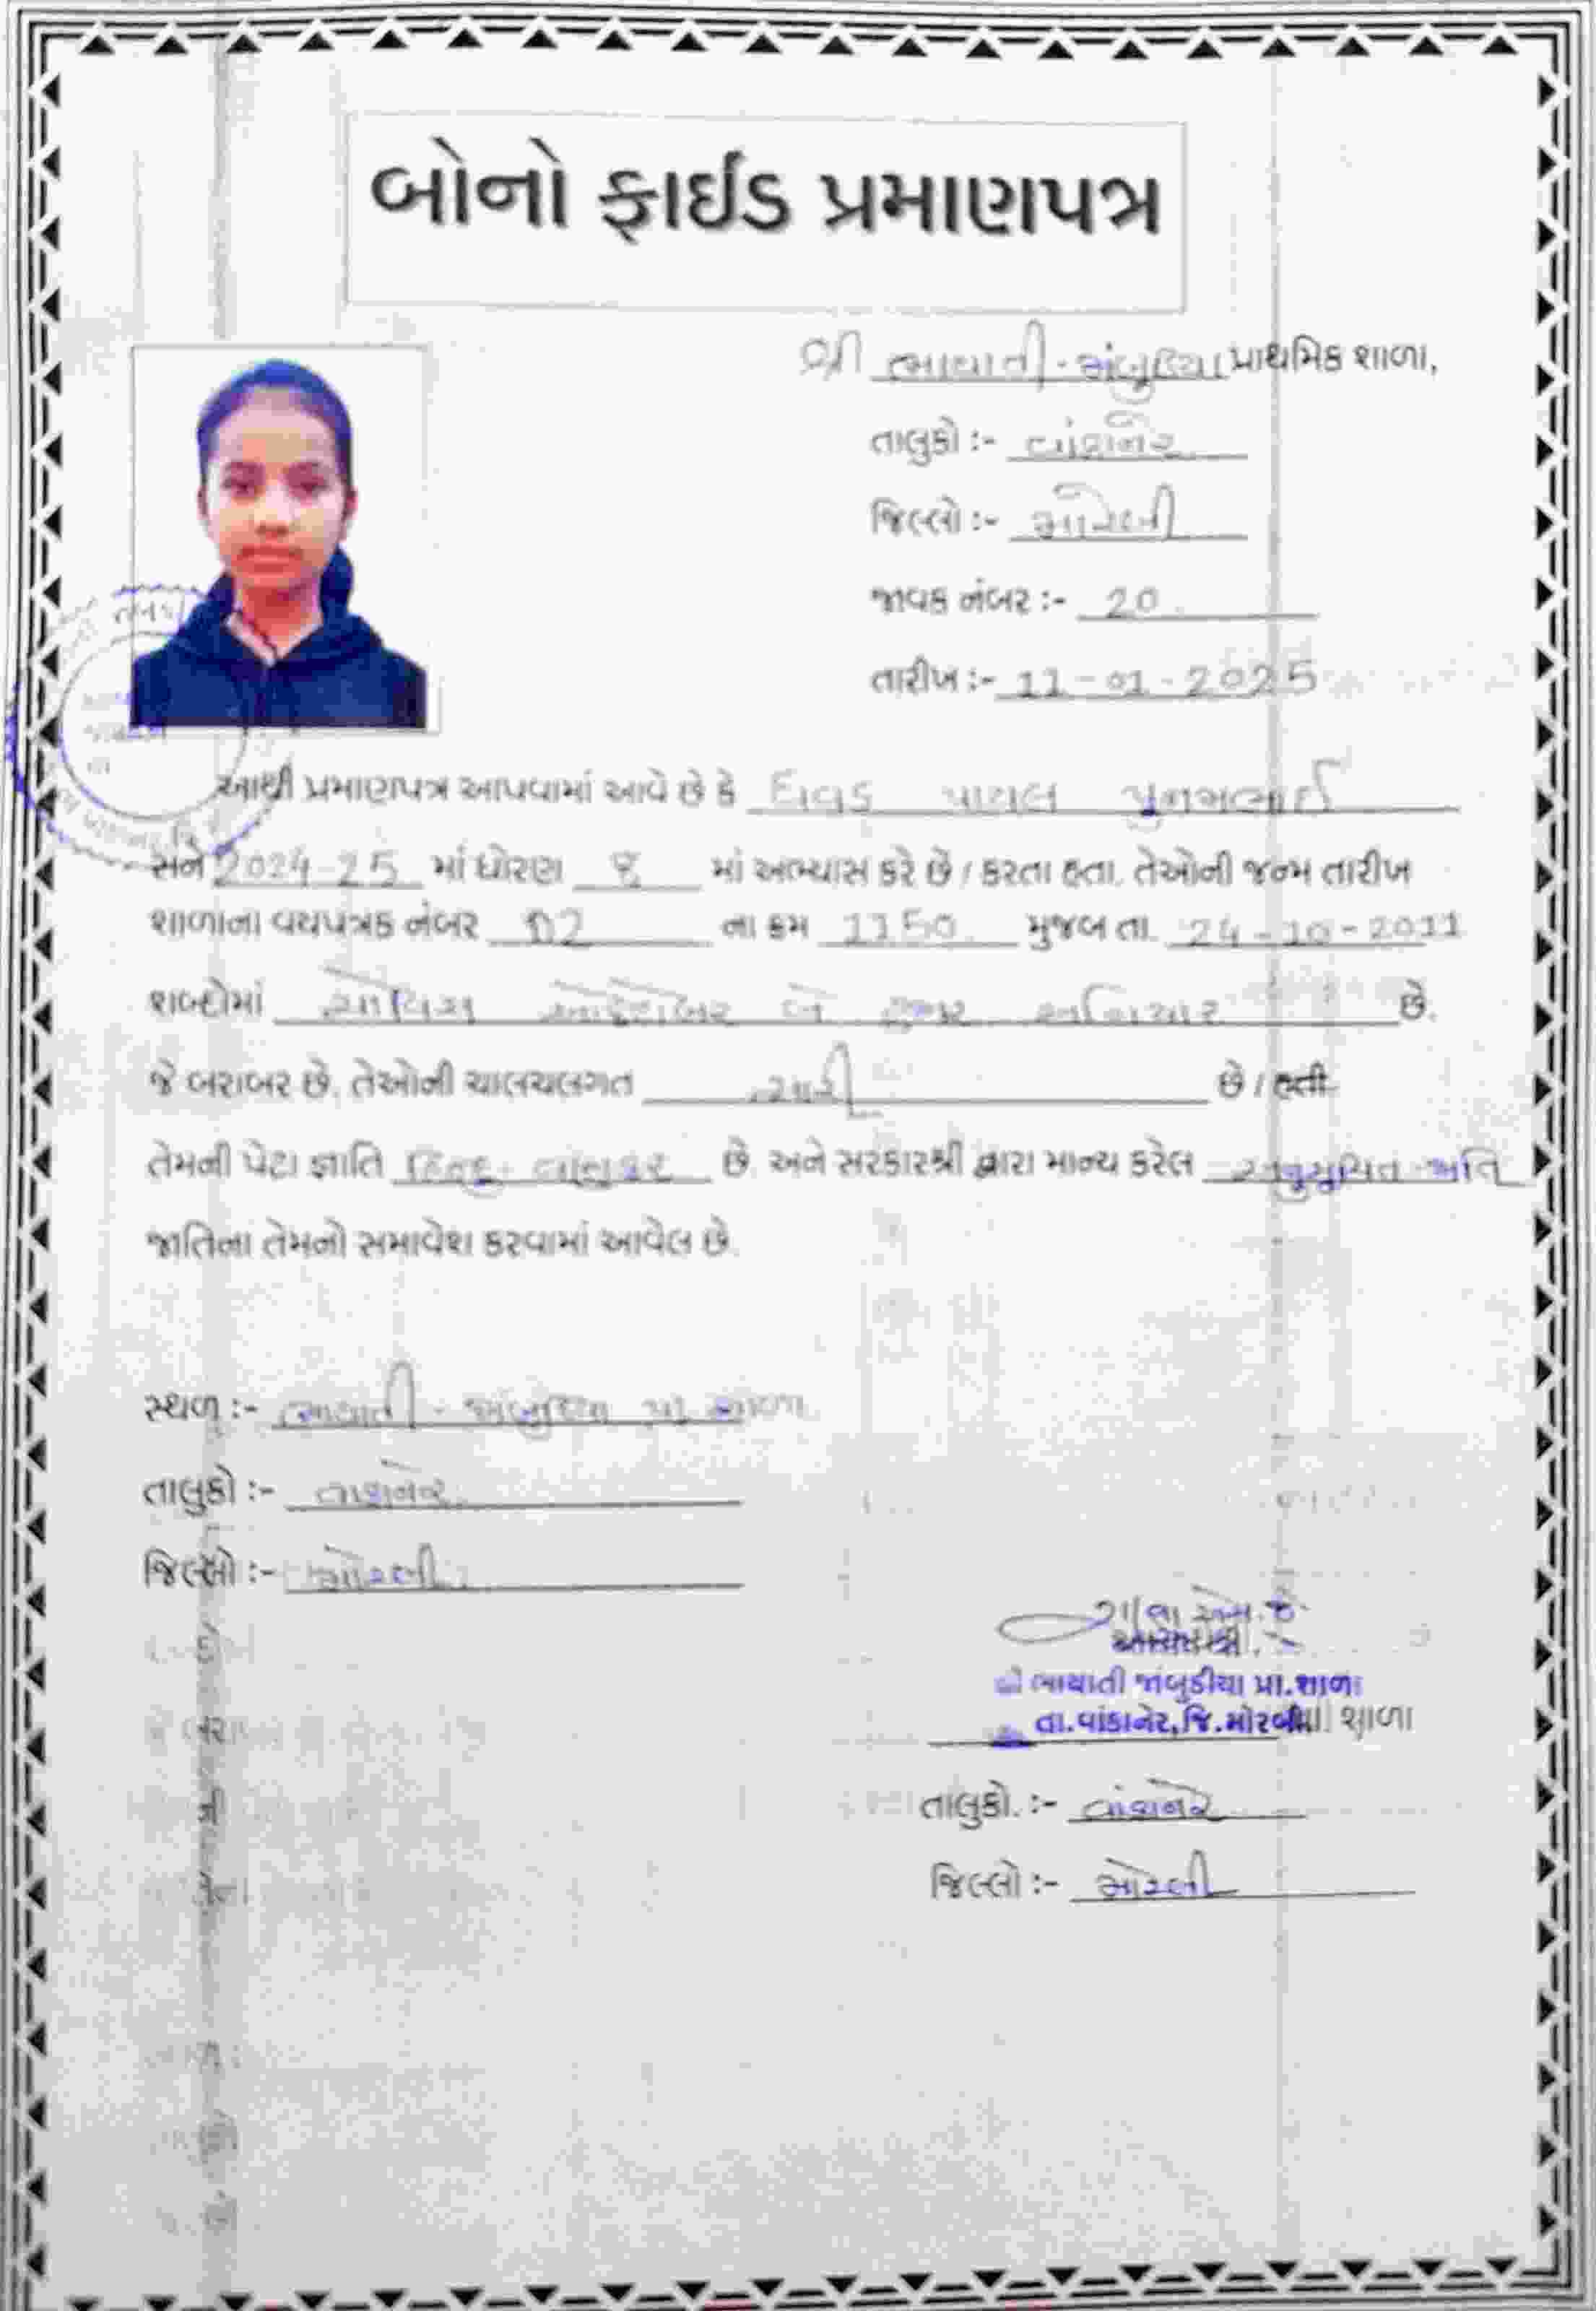 બોનો ફાઈડ પ્રમાણપત્ર
શ્રી ભાયાતી-જાંબુડીયા પ્રાથમિક શાળા,
તાલુકો :- વાંકાનેર
જિલ્લો :- મોરબી
જાવક નંબર :- 20
તારીખ :- 11-01-2025
આથી પ્રમાણપત્ર આપવામાં આવે છે કે પાયલ
સન 2024-25 માં ધોરણ 8 માં અભ્યાસ કરે છે / કરતા હતા. તેઓની જન્મ તારીખ
શાળાના વયપત્રક નંબર 02 ના ક્રમ 1150 મુજબ તા. 24-10-2011
શબ્દોમાં ચોવિસ ઓક્ટોબર બે હજાર અગિયાર છે.
જે બરાબર છે. તેઓની ચાલચલગત સારી છે / હતી
તેમની પેટા જ્ઞાતિ હિન્દુ- છે. અને સરકારશ્રી દ્વારા માન્ય કરેલ અનુસુચિત જાતિ
જાતિના તેમનો સમાવેશ કરવામાં આવેલ છે.
સ્થળ :- ભાયાતી - જાંબુડીયા પ્રા. શાળા
તાલુકો :- વાંકાનેર
જિલ્લો :- મોરબી
આચાર્યશ્રી.
શ્રી ભાયાતી જાંબુડીયા પ્રા.શાળા
તા.વાંકાનેર,જિ.મોરબી શાળા
તાલુકો. :- વાંકાનેર
જિલ્લો :- મોરબી